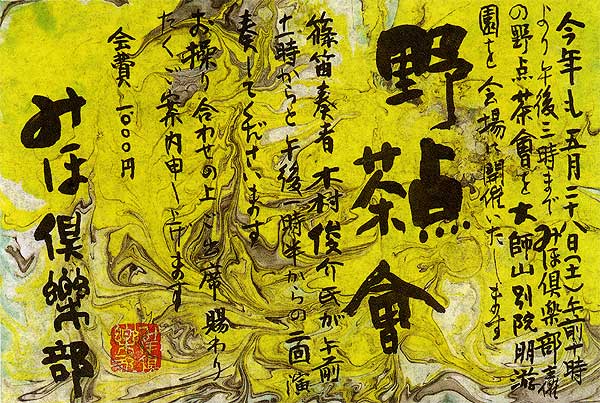 今年も五月二十八日(土)午前十時
より午後三時までみほ倶楽部主催
の野点茶會を大師山別院朋游
園を会場に開催いたします
野点茶會
篠笛奏者 木村俊介氏が午前
十一時からと午後一時半からの二回演
奏してくださいます
お操り合わせの上ご出席賜わり
たくご案内申し上げます
会費 二〇〇〇円
みほ倶樂部